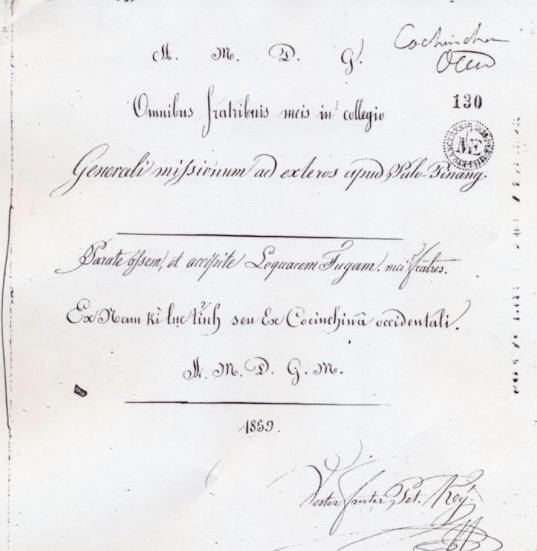 Cochinchin
Occid
A. M. D. G.
130
Omnibus fratribus meis in collegio
ME
Generali missionum ad exteros apud Pulo-Pinang.
Parate Ossem, et accipite Loquacem Fugam. mei fratres.
Ex Nam kì lục tỉnh seu Ex Cocinchinâ occidentali.
A. M. D. G. M.
1859.
Vester frater, Pet. Key.